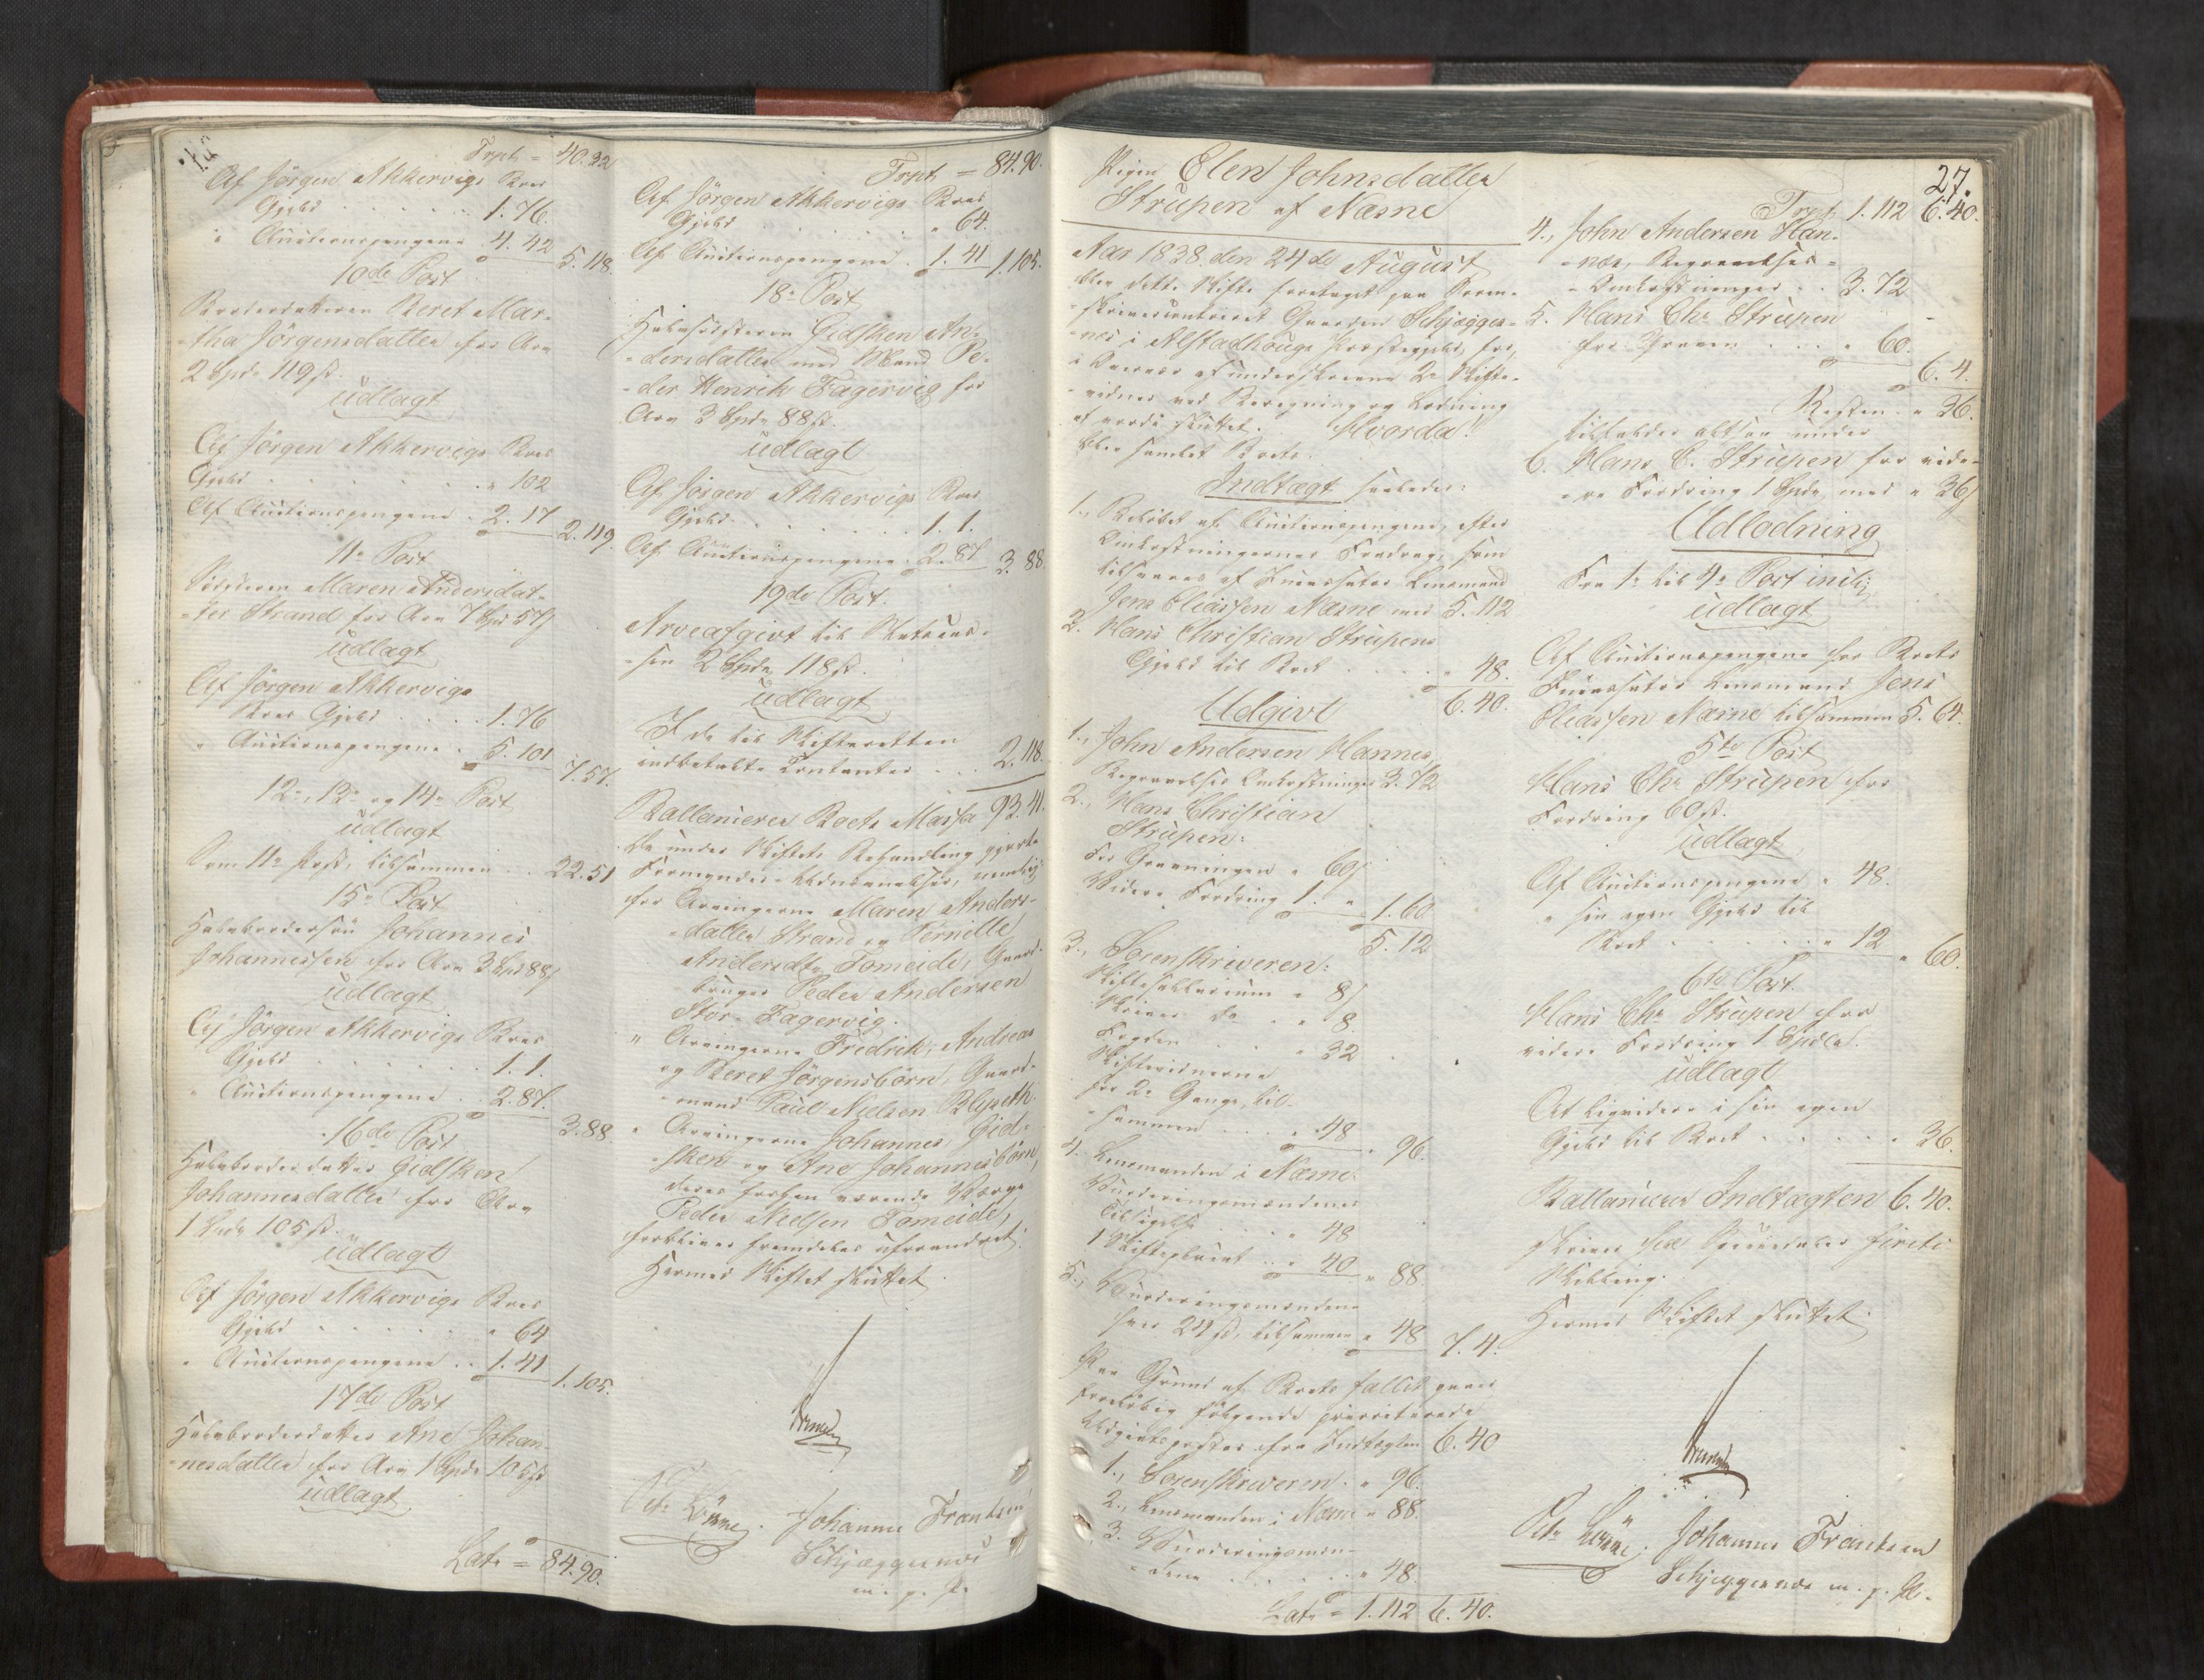 Trpt = 40.22
Af Jörgen Akkervigs Boes
Gjeld . . . . . . 1.76.
" Auctionspengene . 4.42
5.118.
10de Post
Broderdatteren Beret Mar-
tha Jörgensdatter for Arv
2 Spd 119 ß.
udlagt
Af Jörgen Akkervigs Boes
Gjeld . . . . . . " 102
Af Auctionspengene . 2.17
2.119.
11e Post
Söstren Maren Andersdat-
ter Strand for Arv 7 Spd 57 ß
udlagt
Af Jörgen Akkervigs
Boes Gjeld . . . . 1.76
" Auctionspengene . 5.101
7.57.
12e, 13e og 14e Post
udlagt
Som 11e Post, tilsammen . . 22.51
15e Post
Halvbrodersön Johannes
Johannessen for Arv 3 Spd 88 ß
udlagt
Af Jörgen Akkervigs Boes
Gjeld . . . . . . 1.1.
" Auctionspengene . . 2.87.
3.88.
16de Post
Halvbroderdatter Gidsken
Johannesdatter for Arv
1 Spd 105 ß.
udlagt
Af Jörgen Akkervigs Boes
Gjeld . . . . . . " 64
" Auctionspengene . . 1.41
1.105.
17de Post
Halvbroderdatter Ane Johan-
nesdatter for Arv 1 Spd 105 ß
udlagt
Lats = 84.90.
Trpt = 84.90.
Af Jörgen Akkervigs Boes
Gjeld . . . . . . " 64.
Af Auctionspengene . 1.41
1.105.
18e Post
Halvsösteren Gidsken An-
dersdatter med Mand Pe-
der Henrik Fagervig for
Arv 3 Spd 88 ß.
udlagt
Af Jörgen Akkervigs Boes
Gjeld . . . . . . 1.1.
Af Auctionspengene . 2.87
3.88.
19de Post.
Arveafgivt til Statscas-
sen 2 Spd 118 ß.
udlagt
I de til Skifteretten
indbetalte Contanter . . . 2.118.
Ballancerer Boets Massa 93.41.
Da under Skiftets Behandling gjorte
Formynder-Udnævnelser, nemlig
for Arvingerne Maren Anders-
datter Strand og Pernille
Andersdtr Tomeide, Gaard-
bruger Peder Andersen
Stor-Fagervig.
" Arvingerne Fredrik, Andreas
og Beret Jörgensbörn, Gaard-
mand Paul Nielsen Blyseth.
" Arvingerne Johannes, Gid-
sken og Ane Johannesbörn,
deres forhen værende Værge
Peder Nielsen Tomeide,
forbliver fremdeles uforandret.
Hermed Skiftet sluttet.
Johannes Frantsen
Schjeggesnes
m. p. P.
27.
Pigen Elen Johnsdatter
Strupen af Næsne
Aar 1838 den 24de August
blev dette Skifte foretaget paa Soren-
skrivercontoiret Gaarden Schjegges-
nes i Alstadhougs Præstegjeld, for,
i Overvær af underskrevne 2e Skifte-
vidner ved Beregning og Lodning
at vorde sluttet. Hvorda!
blev samlet Boets
Indtægt saaledes:
1., Belöbet af Auctionspengene, efter
Omkostningernes Fradrag, som
tilsvares af Incassator Lensmand
Jens Eliassen Næsne med 5.112
2. Hans Christian Strupens
Gjeld til Boet . . . . " 48.
6.40.
Udgivt
1., John Andersen Hannes,
Begravelses Omkostninger 3.72
2., Hans Christian
Strupen:
For Gravningen " 60 ß
Videre Fordring 1. "
1.60
5.12
3., Sorenskriveren:
Skiftesallarium " 8 ß
Skriver do . . " 8.
Fogden . . . " 32
Skiftevidnerne
for 2e Gange, til-
sammen . . . . " 48
" 96.
4. Lensmanden i Næsne:
Vurderingsmændenes
Tilsigelse . . . " 48
1 Skiftepla . . . " 40
" 88.
5., Vurderingsmændene
hver 24 ß, tilsammen " 48
7.4.
Paa Grund af Boets fallit gaaer
forelöbig fölgende prioriterede
Udgivtsposter fra Indtægten 6.40
1., Sorenskriveren . " 96.
2., Lensmanden i Næsne " 88.
3. Vurderingsmæn-
dene . . . . . . " 48.
Lats = 1.112 6.40.
Trpt 1.112 6.40.
4., John Andersen Han-
nes, Begravelses-
Omkostninger . . 3.72
5. Hans Chr Strupen
for Graven . . . . " 60.
6.4.
Resten . " 36.
tilfalder altsaa under
6. Hans C. Strupen for vide-
re Fordring 1 Spd, med " 36 ß
Udlodning
Fra 1e til 4e Post incl:
udlagt
Af Auctionspengene hos Boets
Incassator Lensmand Jens
Eliassen Næsne tilsammen 5.64.
5te Post
Hans Chr Strupen for
Fordring 60 ß.
udlagt
Af Auctionspengene " 48.
" sin egen Gjeld til
Boet . . . . . . " 12
" 60.
6te Post.
Hans Chr Strupen for
videre Fordring 1 Spdlr.
udlagt
At liqvidere i sin egen
Gjeld til Boet . . . . . " 36.
Ballancerer Indtægten 6.40.
skriver Sex Speciedaler fireti
Skilling.
Hermed Skiftet sluttet.
Johannes Frantsen
Schjeggesnes m. p. P.